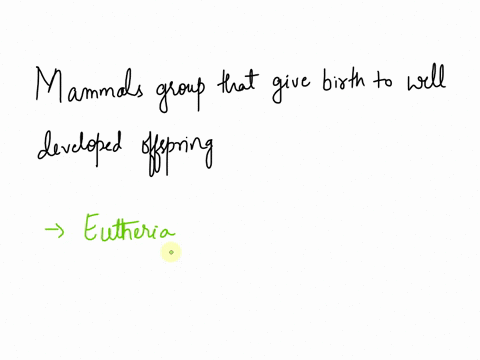 Mammals group that give birth to well
developed offspring
→ Eutheria